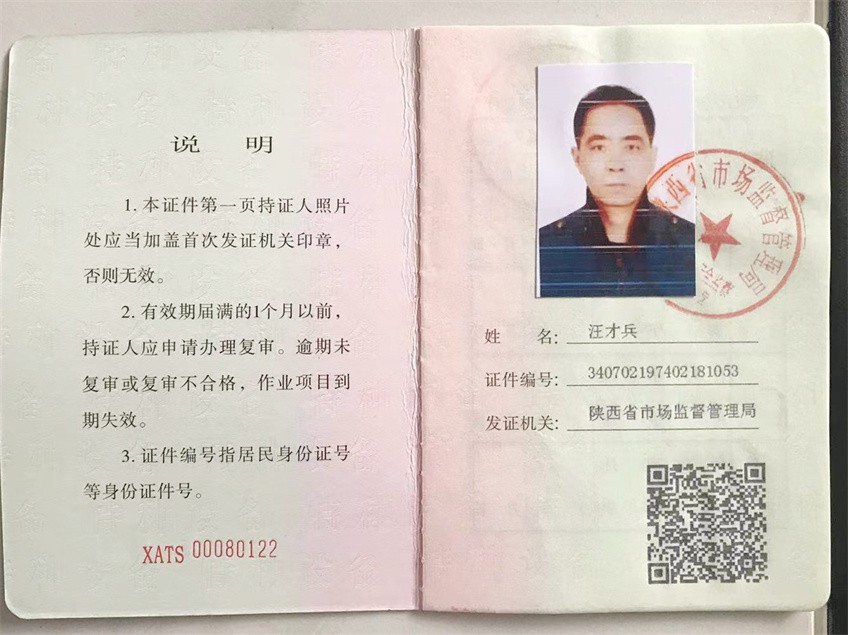 说 明
1. 本证件第一页持证人照片
处应当加盖首次发证机关印章，
否则无效。
2. 有效期届满的1个月以前，
持证人应申请办理复审。逾期未
复审或复审不合格，作业项目到
期失效。
3. 证件编号指居民身份证号
等身份证件号。
XATS 00080122
陕西省市场监督管理局
姓 名： 汪才兵
证件编号： 340702197402181053
发证机关： 陕西省市场监督管理局